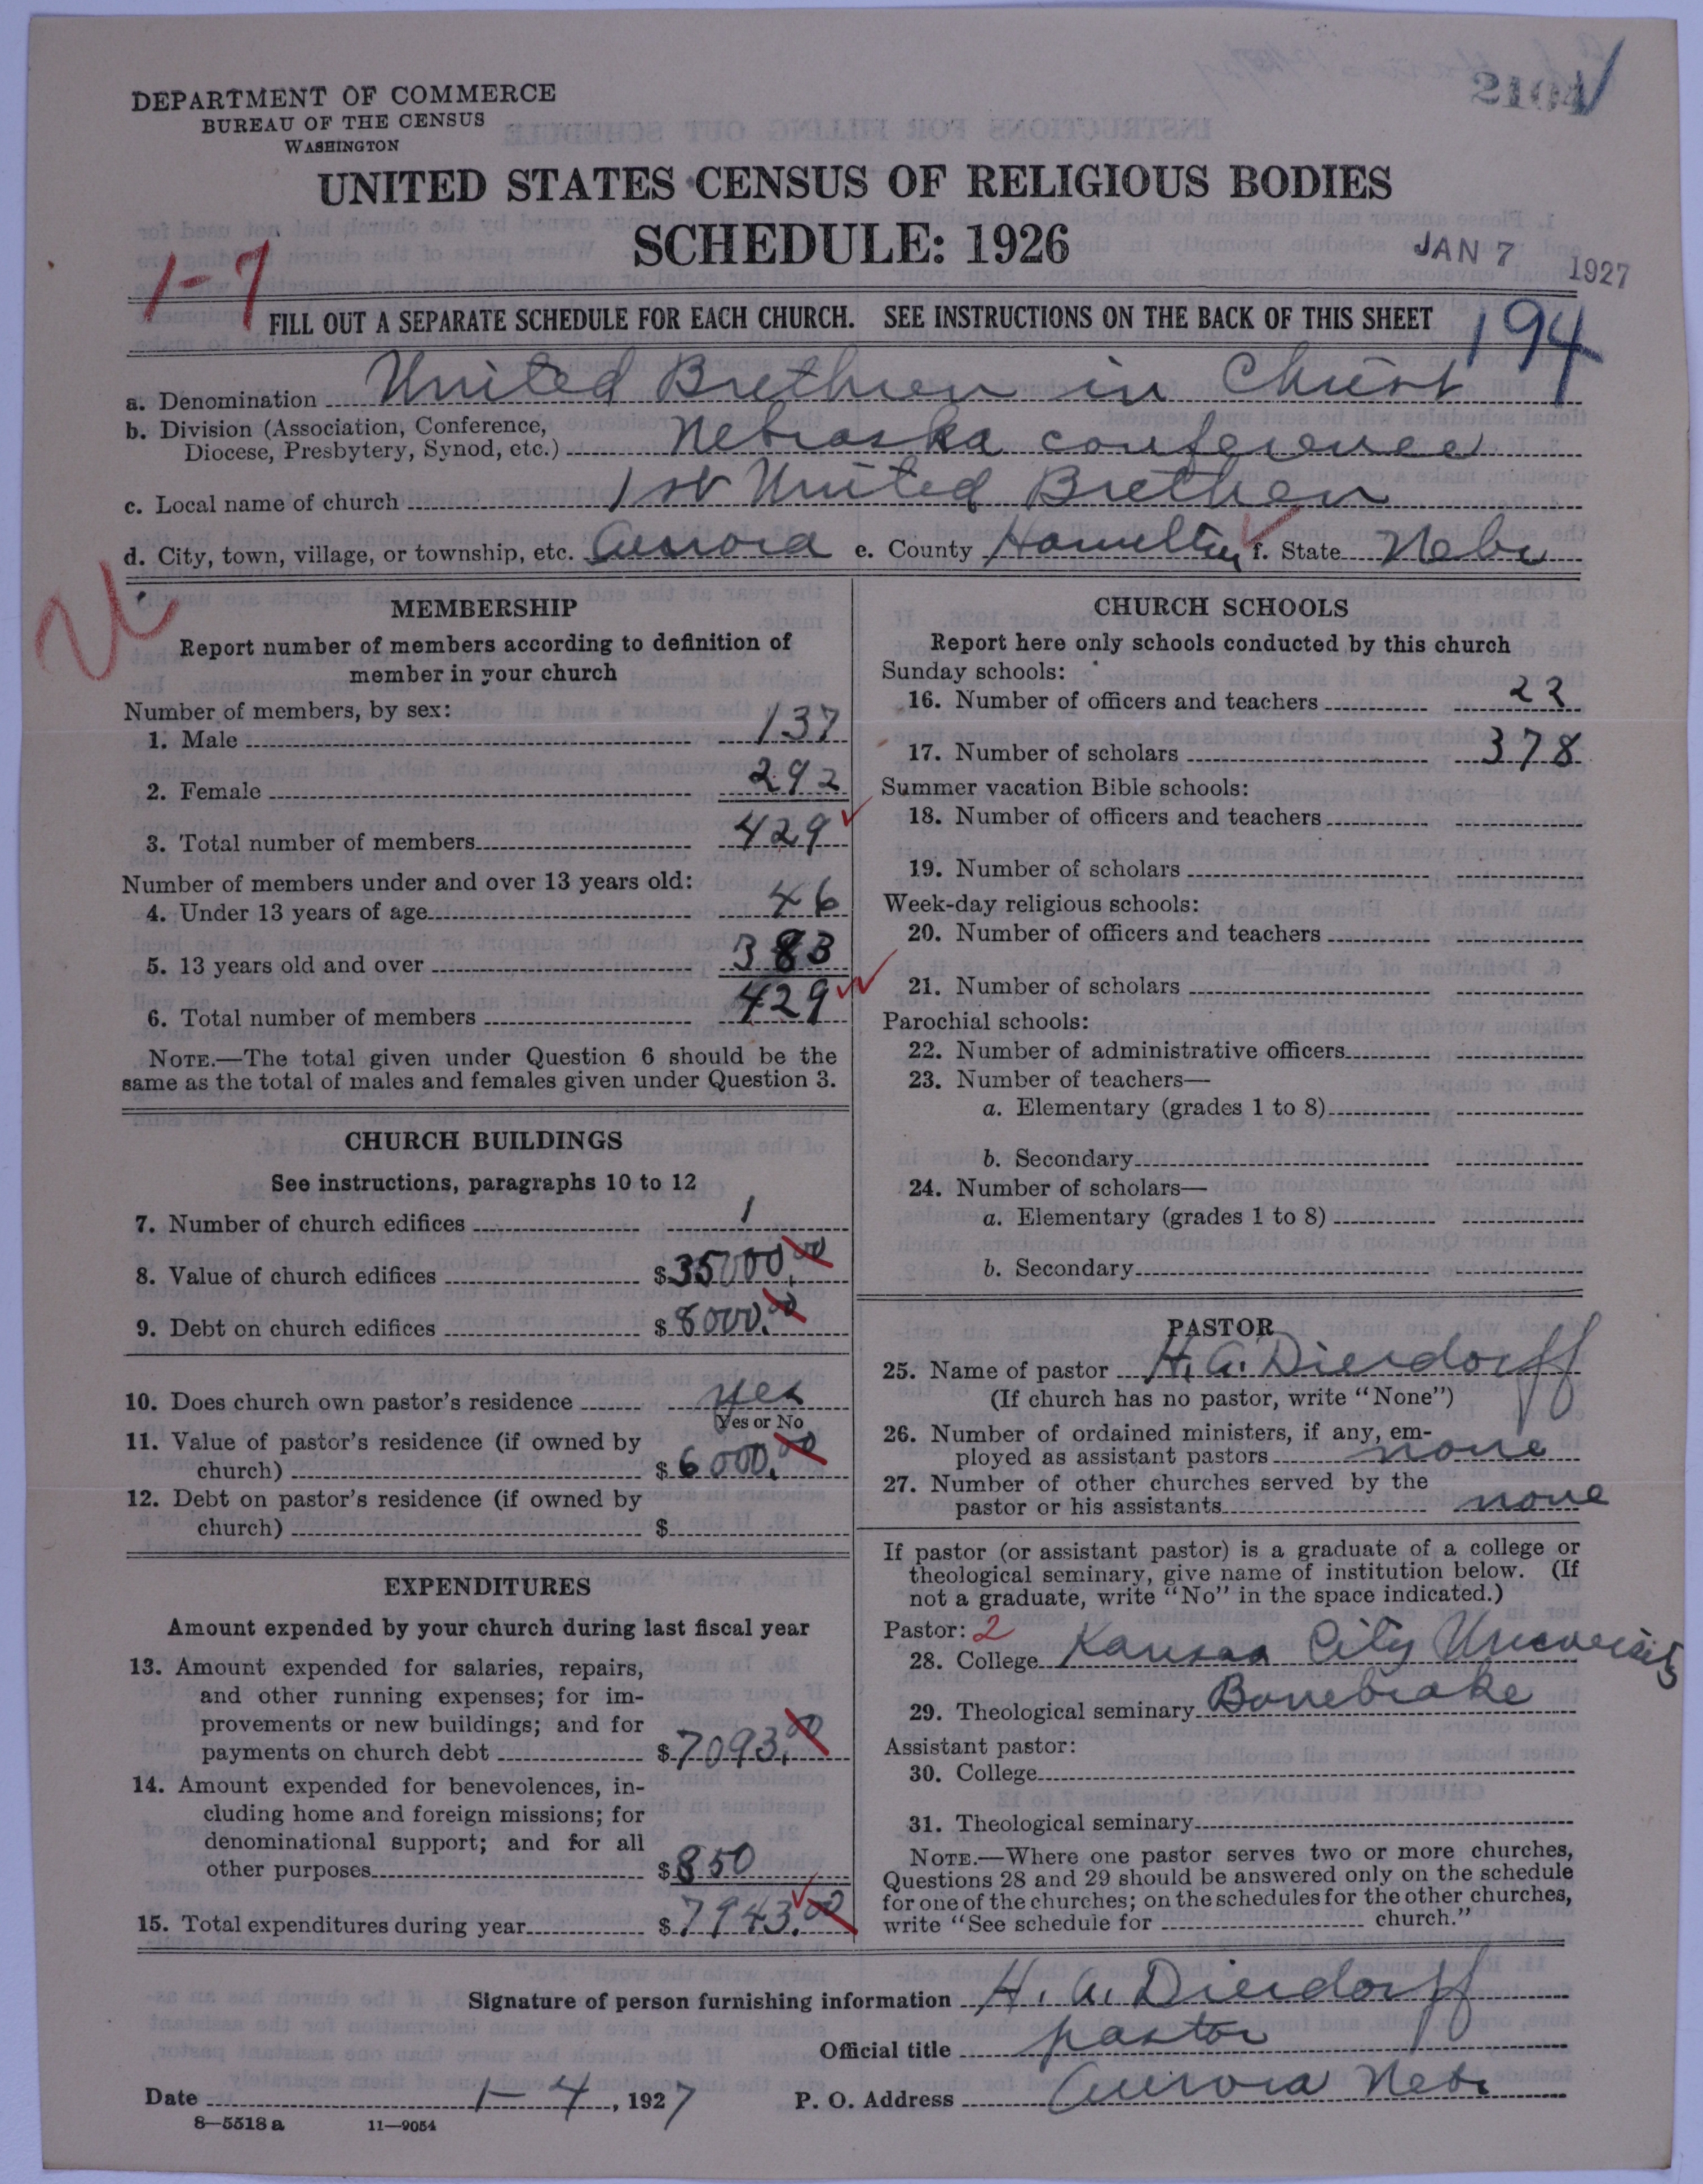 2104
DEPARTMENT OF COMMERCE
BUREAU OF THE CENSUS
WASHINGTON
UNITED STATES CENSUS OF RELIGIOUS BODIES
SCHEDULE: 1926
JAN 7 1927
1-7
FILL OUT A SEPARATE SCHEDULE FOR EACH CHURCH. SEE INSTRUCTIONS ON THE BACK OF THIS SHEET
194
a. Denomination United Brethren in Christ
b. Division (Association, Conference, Diocese, Presbytery, Synod, etc.) Nebraska conference
c. Local name of church 1st United Brethen
d. City, town, village, or township, etc. Aurora e. County Hamilton f. State Nebr
MEMBERSHIP
Report number of members according to definition of
member in your church
Number of members, by sex:
1. Male 137
2. Female 292
3. Total number of members 429
Number of members under and over 13 years old:
4. Under 13 years of age 46
5. 13 years old and over 383
6. Total number of members 429
NOTE.—The total given under Question 6 should be the
same as the total of males and females given under Question 3.
CHURCH BUILDINGS
See instructions, paragraphs 10 to 12
7. Number of church edifices 1
8. Value of church edifices $35000.00
9. Debt on church edifices $8000.00
10. Does church own pastor's residence yes
Yes or No
11. Value of pastor's residence (if owned by
church) $6000.00
12. Debt on pastor's residence (if owned by
church) $
EXPENDITURES
Amount expended by your church during last fiscal year
13. Amount expended for salaries, repairs,
and other running expenses; for im-
provements or new buildings; and for
payments on church debt $7093.00
14. Amount expended for benevolences, in-
cluding home and foreign missions; for
denominational support; and for all
other purposes $850
15. Total expenditures during year $7943.00
CHURCH SCHOOLS
Report here only schools conducted by this church
Sunday schools:
16. Number of officers and teachers 22
17. Number of scholars 378
Summer vacation Bible schools:
18. Number of officers and teachers
19. Number of scholars
Week-day religious schools:
20. Number of officers and teachers
21. Number of scholars
Parochial schools:
22. Number of administrative officers
23. Number of teachers—
a. Elementary (grades 1 to 8)
b. Secondary
24. Number of scholars—
a. Elementary (grades 1 to 8)
b. Secondary
PASTOR
25. Name of pastor H. A. Dierdorff
(If church has no pastor, write "None")
26. Number of ordained ministers, if any, em-
ployed as assistant pastors none
27. Number of other churches served by the
pastor or his assistants none
If pastor (or assistant pastor) is a graduate of a college or
theological seminary, give name of institution below. (If
not a graduate, write "No" in the space indicated.)
Pastor: 2
28. College Kansas City University
29. Theological seminary Bonebrake
Assistant pastor:
30. College
31. Theological seminary
NOTE.—Where one pastor serves two or more churches,
Questions 28 and 29 should be answered only on the schedule
for one of the churches; on the schedules for the other churches,
write "See schedule for church."
Signature of person furnishing information H. A. Dierdorff
Official title pastor
Date 1-4, 1927 P. O. Address Aurora Nebr
8—5518 a 11—9054